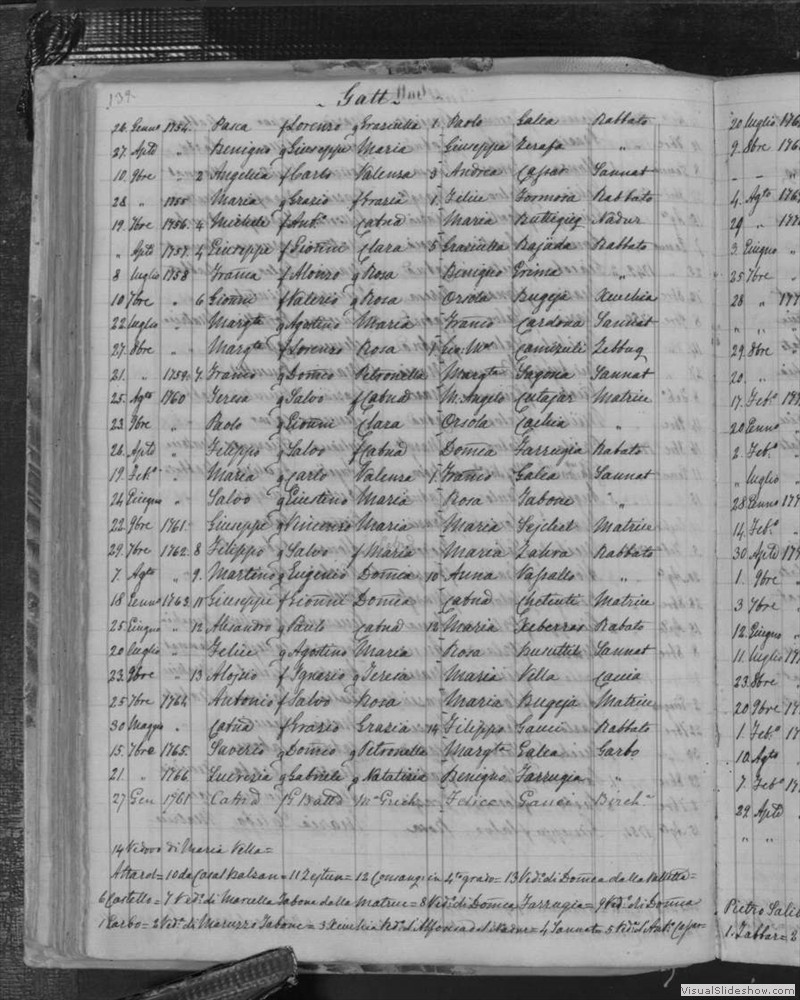 134
Gatt
26 Genno 1754 Pasca f Lorenzo g Graziulla 1 Paolo Galea Rabbato
27 Aple " Benigno g Giuseppe Maria Giuseppa Zerafa "
10 9bre " 2 Angelica f Carlo Valenza 3 Andrea Sannat
28 " 1755 Maria g Grazio f Grazia 1 Felice Formosa Rabbato
19 7bre 1756 4 Michele f Ant.o Catna Maria Buttigieg Nadur
" Aple 1757 4 Giuseppe f Gionni Clara 5 Graziulla Bajada Rabbato
8 luglio 1758 f Alonzo g Rosa Benigno Grima "
10 7bre " 6 Gionni f Valerio g Rosa Orsola Bugeja Xeuchia
22 luglio " Margta g Agostino Maria Franco Cardona Sannat
27 8bre " Margta f Lorenzo Rosa 1 Camizuli Zebbug
21 " 1759 7 Franco g Domco Petronella Margta Sagona Sannat
25 Agto 1760 Teresa g Salvo f Catna M. Angelo Cutajar Matrice
23 9bre " Paolo g Gionni Clara Orsola Cachia "
26 Aple " Filippo g Salvo f Catna Domca Farrugia Rabato
19 Feb.o " Maria g Carlo Valenza 1 Franco Galea Sannat
24 Giugno " Salvo g Giustino Maria Rosa Tabone "
22 9bre 1761 Giuseppe g Vincenzo Maria Maria Matrice
29 7bre 1762 8 Filippo g Salvo f Maria Maria Zahra Rabbato
7 Agto " 9 Martino g Eugenio Domca 10 Anna Vassallo "
18 Genno 1763 11 Giuseppe f Gionni Domca Catna Chetcuti Matrice
25 Giugno " 12 Alisandro g Paulo Catna 12 Maria Xiberras Rabato
20 luglio " Felice g Agostino Maria Rosa Buruttil Sannat
23 9bre " 13 Aloisio f Ignazio g Teresa Maria Vella Cacia
25 7bre 1764 Antonio f Salvo Rosa Maria Bugeja Matrice
30 Maggio " Catna f Grazio Grazia 14 Filippo Gauci Rabbato
15 7bre 1765 Saverio g Domco g Petronella Margta Galea Garbo
21 " 1766 Lucrezia g Gabriele g Natalizia Benigno Farrugia "
27 Gen 1761 Catnd G Batta Felice Gauci Birch.a
14 Vedovo di Maria Vella =
Attard = 10 da Casal Balzan = 11 Zejtun = 12 Consang: in 4to grado = 13 Ved.o di Domca dalla Valletta =
6 Castello = 7 Ved.o di Marulla Tabone dalla Matrice = 8 Ved.o di Domca Farrugia = 9 Ved.o di Domca
1 Garbo = 2 Ved.o di Maruzza Tabone = 3 Xeuchia Ved.o di Alfonza del Nadur = 4 Sannat = 5 Ved.o d'Ant.o
20 luglio 176
9 8bre 176
- - "
4 Agto 1769
29 " 177
3 Giugno "
25 7bre "
28 " 177
" " "
29 8bre "
20 "
17 Feb.o 177
20 Genno "
2 Feb.o "
" luglio "
28 Genno 177
14 Feb.o "
30 Aple 17
1 9bre "
3 7bre "
12 Giugno "
11 luglio 17
23 8bre "
20 9bre 17
1 Feb.o 17
10 Agto "
7 Feb.o 17
29 Aple
" "
Pietro Sali
1 Zabbar = 2
VisualSlideshow.com